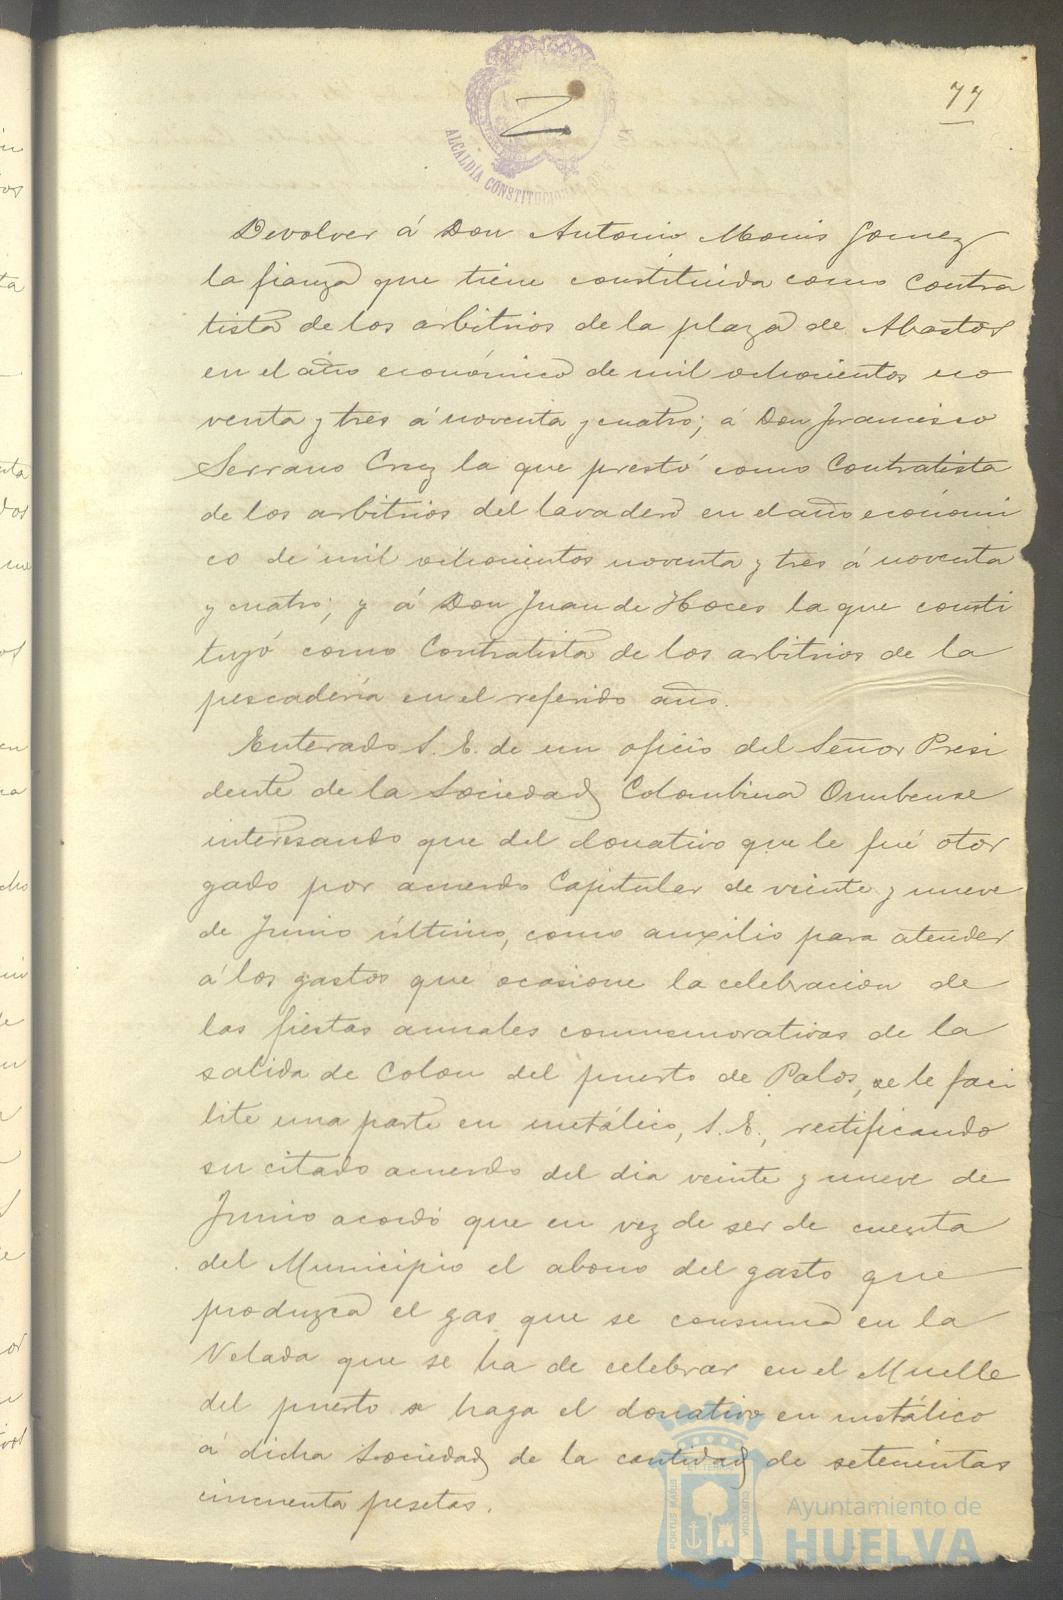 77
ALCALDÍA CONSTITUCIONAL DE
Devolver á Don Antonio Monis Gomez
la fianza que tiene constituida como Contra
tista de los arbitrios de la plaza de Abastos
en el año económico de mil ochocientos no
venta y tres á noventa y cuatro; á Don Francisco
Serrano Cruz la que prestó como Contratista
de los arbitrios del lavadero en el año económi
co de mil ochocientos noventa y tres á noventa
y cuatro; y á Don Juan de Hoces la que consti
tuyó como Contratista de los arbitrios de la
pescadería en el referido año.
Enterado S. E. de un oficio del Señor Presi
dente de la Sociedad Colombina Onubense
interesando que del donativo que le fué otor
gado por acuerdo Capitular de veinte y nueve
de Junio último, como auxilio para atender
á los gastos que ocasione la celebracion de
las fiestas anuales conmemorativas de la
salida de Colon del puerto de Palos, se le faci
lite una parte en metálico, S. E., rectificando
su citado acuerdo del dia veinte y nueve de
Junio acordó que en vez de ser de cuenta
del Municipio el abono del gasto que
produzca el gas que se consuma en la
Velada que se ha de celebrar en el Muelle
del puerto se haga el donativo en metálico
á dicha Sociedad de la cantidad de setecientas
cincuenta pesetas.
PORTUS MARIS
CUSTODIA
Ayuntamiento de
HUELVA